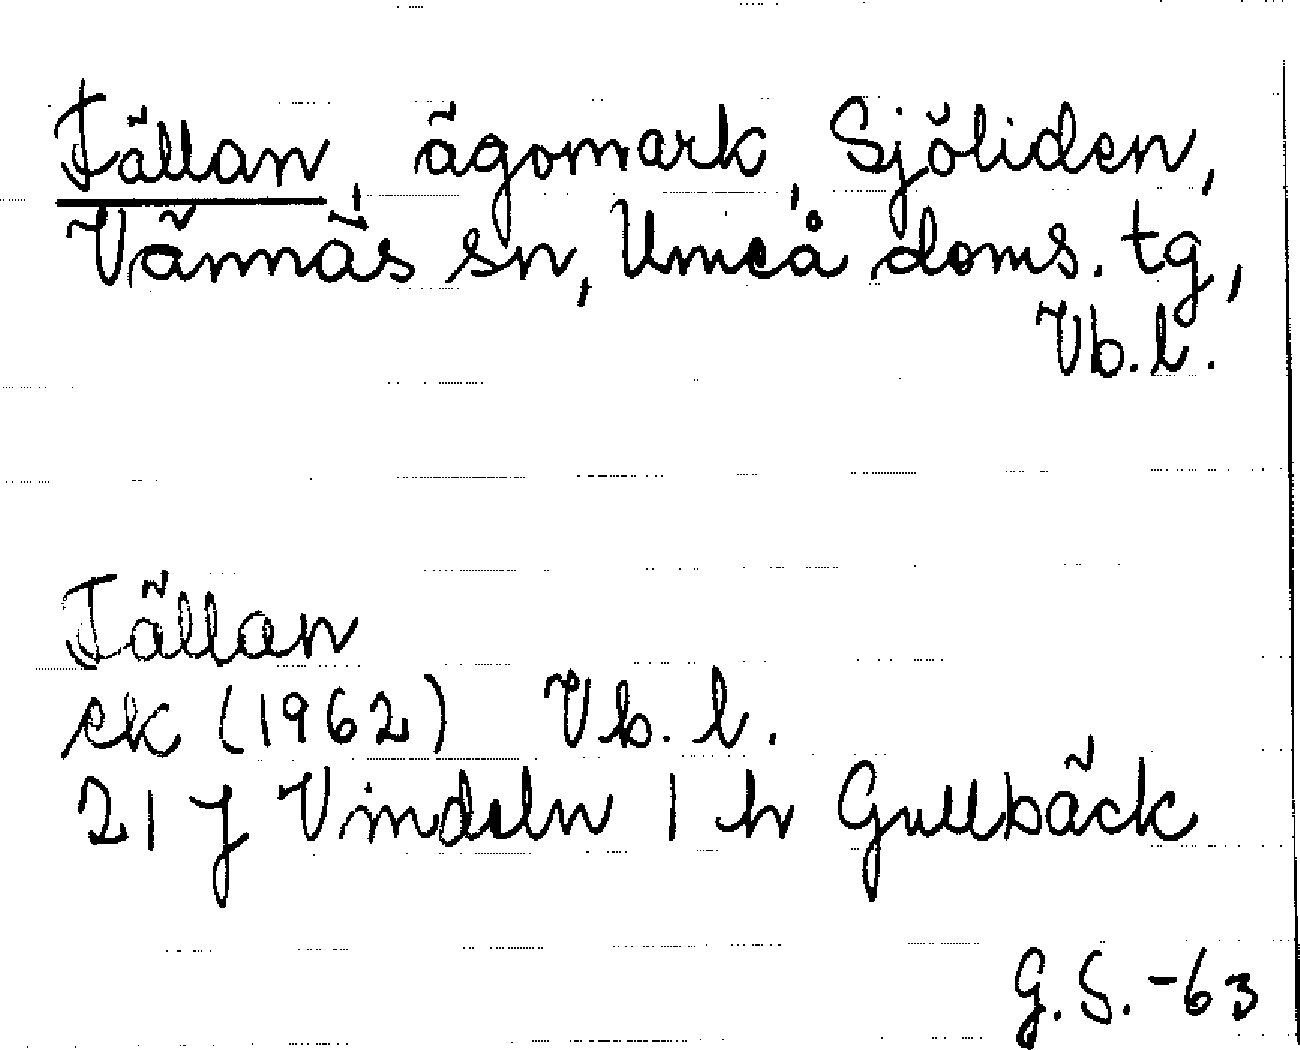 Fällan, ägomark, Sjöliden,
Vännäs sn, Umeå doms. tg,
Vb.l.
Fällan
ek (1962) Vb. l.
21 J Vindeln 1 h Gullbäck
G.S.-63